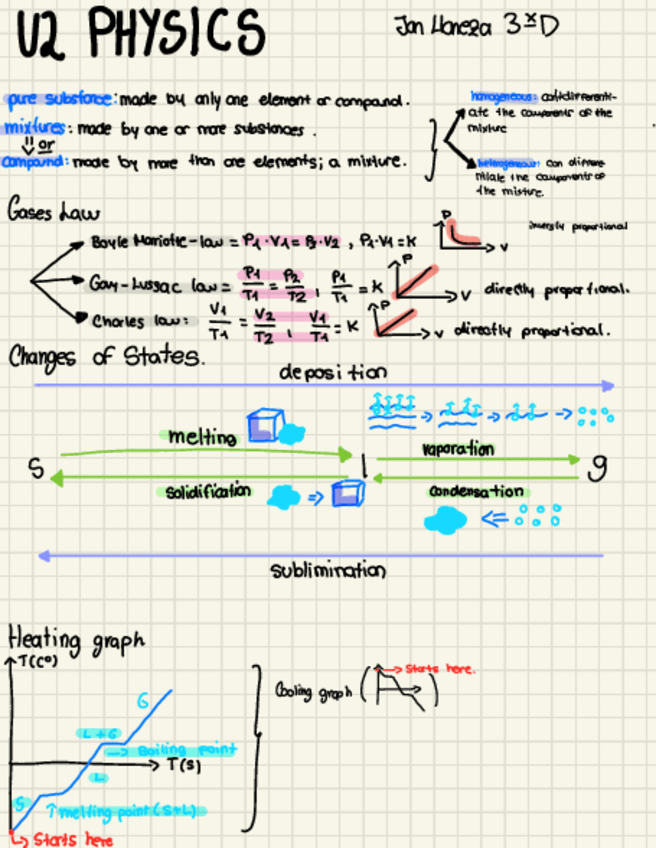 U2 PHYSICS
Jan Llaneza 3ºD
pure substance: made by only one element or compound.
mixtures: made by one or more substances.
or
compound: made by more than one elements; a mixture.
homogeneous: can't differenti-
ate the components of the
mixture
heterogeneous: can differe-
ntiate the components of
the mixture.
Gases Law
Boyle Mariotte-law = P1·V1 = P2·V2, P1·V1 = K
P
V
inversly proportional
Gay-Lussac law = P1/T1 = P2/T2, P1/T1 = K
P
V
directly proportional.
Charles law: V1/T1 = V2/T2, V1/T1 = K
P
V
directly proportional.
Changes of States.
deposition
melting
vaporation
S
l
g
solidification
condensation
sublimination
Heating graph
T(Cº)
Cooling graph
Starts here.
G
L+G
Boiling point
T(S)
L
S
melting point (S+L)
Starts here